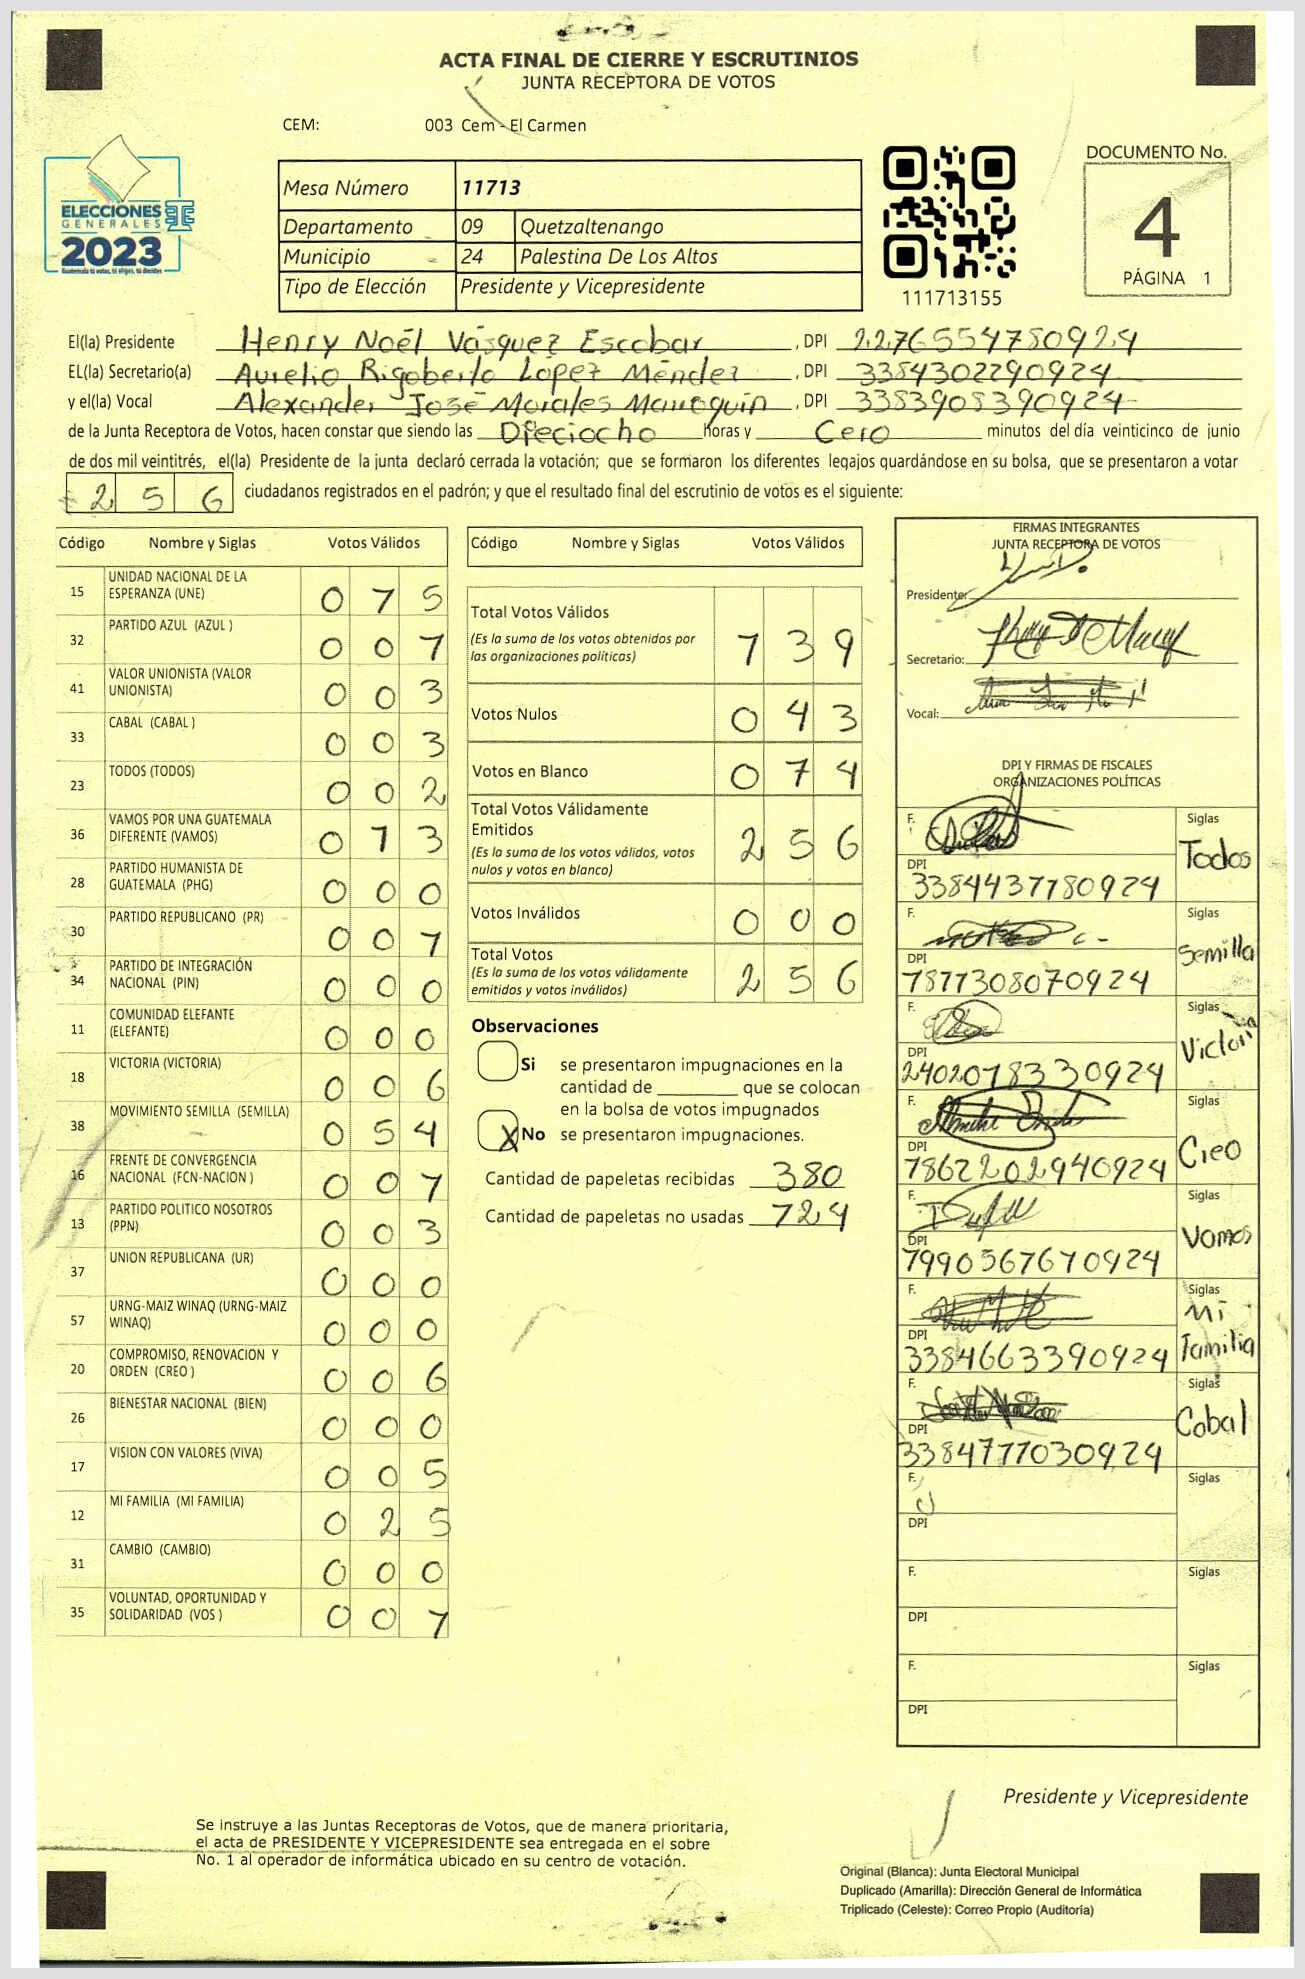 ACTA FINAL DE CIERRE Y ESCRUTINIOS
JUNTA RECEPTORA DE VOTOS
CEM: 003 Cem - El Carmen
ELECCIONES
GENERALES
2023
Guatemala tú votas, tú eliges, tú decides
Mesa Número 11713
Departamento 09 Quetzaltenango
Municipio 24 Palestina De Los Altos
Tipo de Elección Presidente y Vicepresidente
111713155
DOCUMENTO No.
4
PÁGINA 1
El(la) Presidente Henry Noël Vásquez Escobar , DPI 2276554780924
EL(la) Secretario(a) Aurelio Rigoberto López Méndez , DPI 3384302290924
y el(la) Vocal Alexander José Morales Marroquín , DPI 3383908390924
de la Junta Receptora de Votos, hacen constar que siendo las Dieciocho horas y Cero minutos del día veinticinco de junio
de dos mil veintitrés, el(la) Presidente de la junta declaró cerrada la votación; que se formaron los diferentes legajos quardándose en su bolsa, que se presentaron a votar
256 ciudadanos registrados en el padrón; y que el resultado final del escrutinio de votos es el siguiente:
Código Nombre y Siglas Votos Válidos
15 UNIDAD NACIONAL DE LA
ESPERANZA (UNE) 0 1 5
32 PARTIDO AZUL (AZUL ) 0 0 1
41 VALOR UNIONISTA (VALOR
UNIONISTA) 0 0 3
33 CABAL (CABAL ) 0 0 3
23 TODOS (TODOS) 0 0 2
36 VAMOS POR UNA GUATEMALA
DIFERENTE (VAMOS) 0 1 3
28 PARTIDO HUMANISTA DE
GUATEMALA (PHG) 0 0 0
30 PARTIDO REPUBLICANO (PR) 0 0 1
34 PARTIDO DE INTEGRACIÓN
NACIONAL (PIN) 0 0 0
11 COMUNIDAD ELEFANTE
(ELEFANTE) 0 0 0
18 VICTORIA (VICTORIA) 0 0 6
38 MOVIMIENTO SEMILLA (SEMILLA) 0 5 4
16 FRENTE DE CONVERGENCIA
NACIONAL (FCN-NACION ) 0 0 1
13 PARTIDO POLITICO NOSOTROS
(PPN) 0 0 3
37 UNION REPUBLICANA (UR) 0 0 0
57 URNG-MAIZ WINAQ (URNG-MAIZ
WINAQ) 0 0 0
20 COMPROMISO, RENOVACION Y
ORDEN (CREO ) 0 0 6
26 BIENESTAR NACIONAL (BIEN) 0 0 0
17 VISION CON VALORES (VIVA) 0 0 5
12 MI FAMILIA (MI FAMILIA) 0 2 5
31 CAMBIO (CAMBIO) 0 0 0
35 VOLUNTAD, OPORTUNIDAD Y
SOLIDARIDAD (VOS ) 0 0 1
Código Nombre y Siglas Votos Válidos
Total Votos Válidos
(Es la suma de los votos obtenidos por
las organizaciones políticas) 1 3 9
Votos Nulos 0 4 3
Votos en Blanco 0 7 4
Total Votos Válidamente
Emitidos
(Es la suma de los votos válidos, votos
nulos y votos en blanco) 2 5 6
Votos Inválidos 0 0 0
Total Votos
(Es la suma de los votos válidamente
emitidos y votos inválidos) 2 5 6
Observaciones
Si se presentaron impugnaciones en la
cantidad de ________ que se colocan
en la bolsa de votos impugnados
X No se presentaron impugnaciones.
Cantidad de papeletas recibidas 380
Cantidad de papeletas no usadas 124
FIRMAS INTEGRANTES
JUNTA RECEPTORA DE VOTOS
Presidente:
Secretario:
Vocal:
DPI Y FIRMAS DE FISCALES
ORGANIZACIONES POLÍTICAS
F. Siglas
Todos
DPI
3384437780924
F. Siglas
Semilla
DPI
1877308070924
F. Siglas
Victoria
DPI
2402018330924
F. Siglas
Creo
DPI
1862202940924
F. Siglas
Vamos
DPI
1990567610924
F. Siglas
Mi
familia
DPI
3384663390924
F. Siglas
Cabal
DPI
3384777030924
F. Siglas
DPI
F. Siglas
DPI
F. Siglas
DPI
Presidente y Vicepresidente
Se instruye a las Juntas Receptoras de Votos, que de manera prioritaria,
el acta de PRESIDENTE Y VICEPRESIDENTE sea entregada en el sobre
No. 1 al operador de informática ubicado en su centro de votación.
Original (Blanca): Junta Electoral Municipal
Duplicado (Amarilla): Dirección General de Informática
Triplicado (Celeste): Correo Propio (Auditoría)